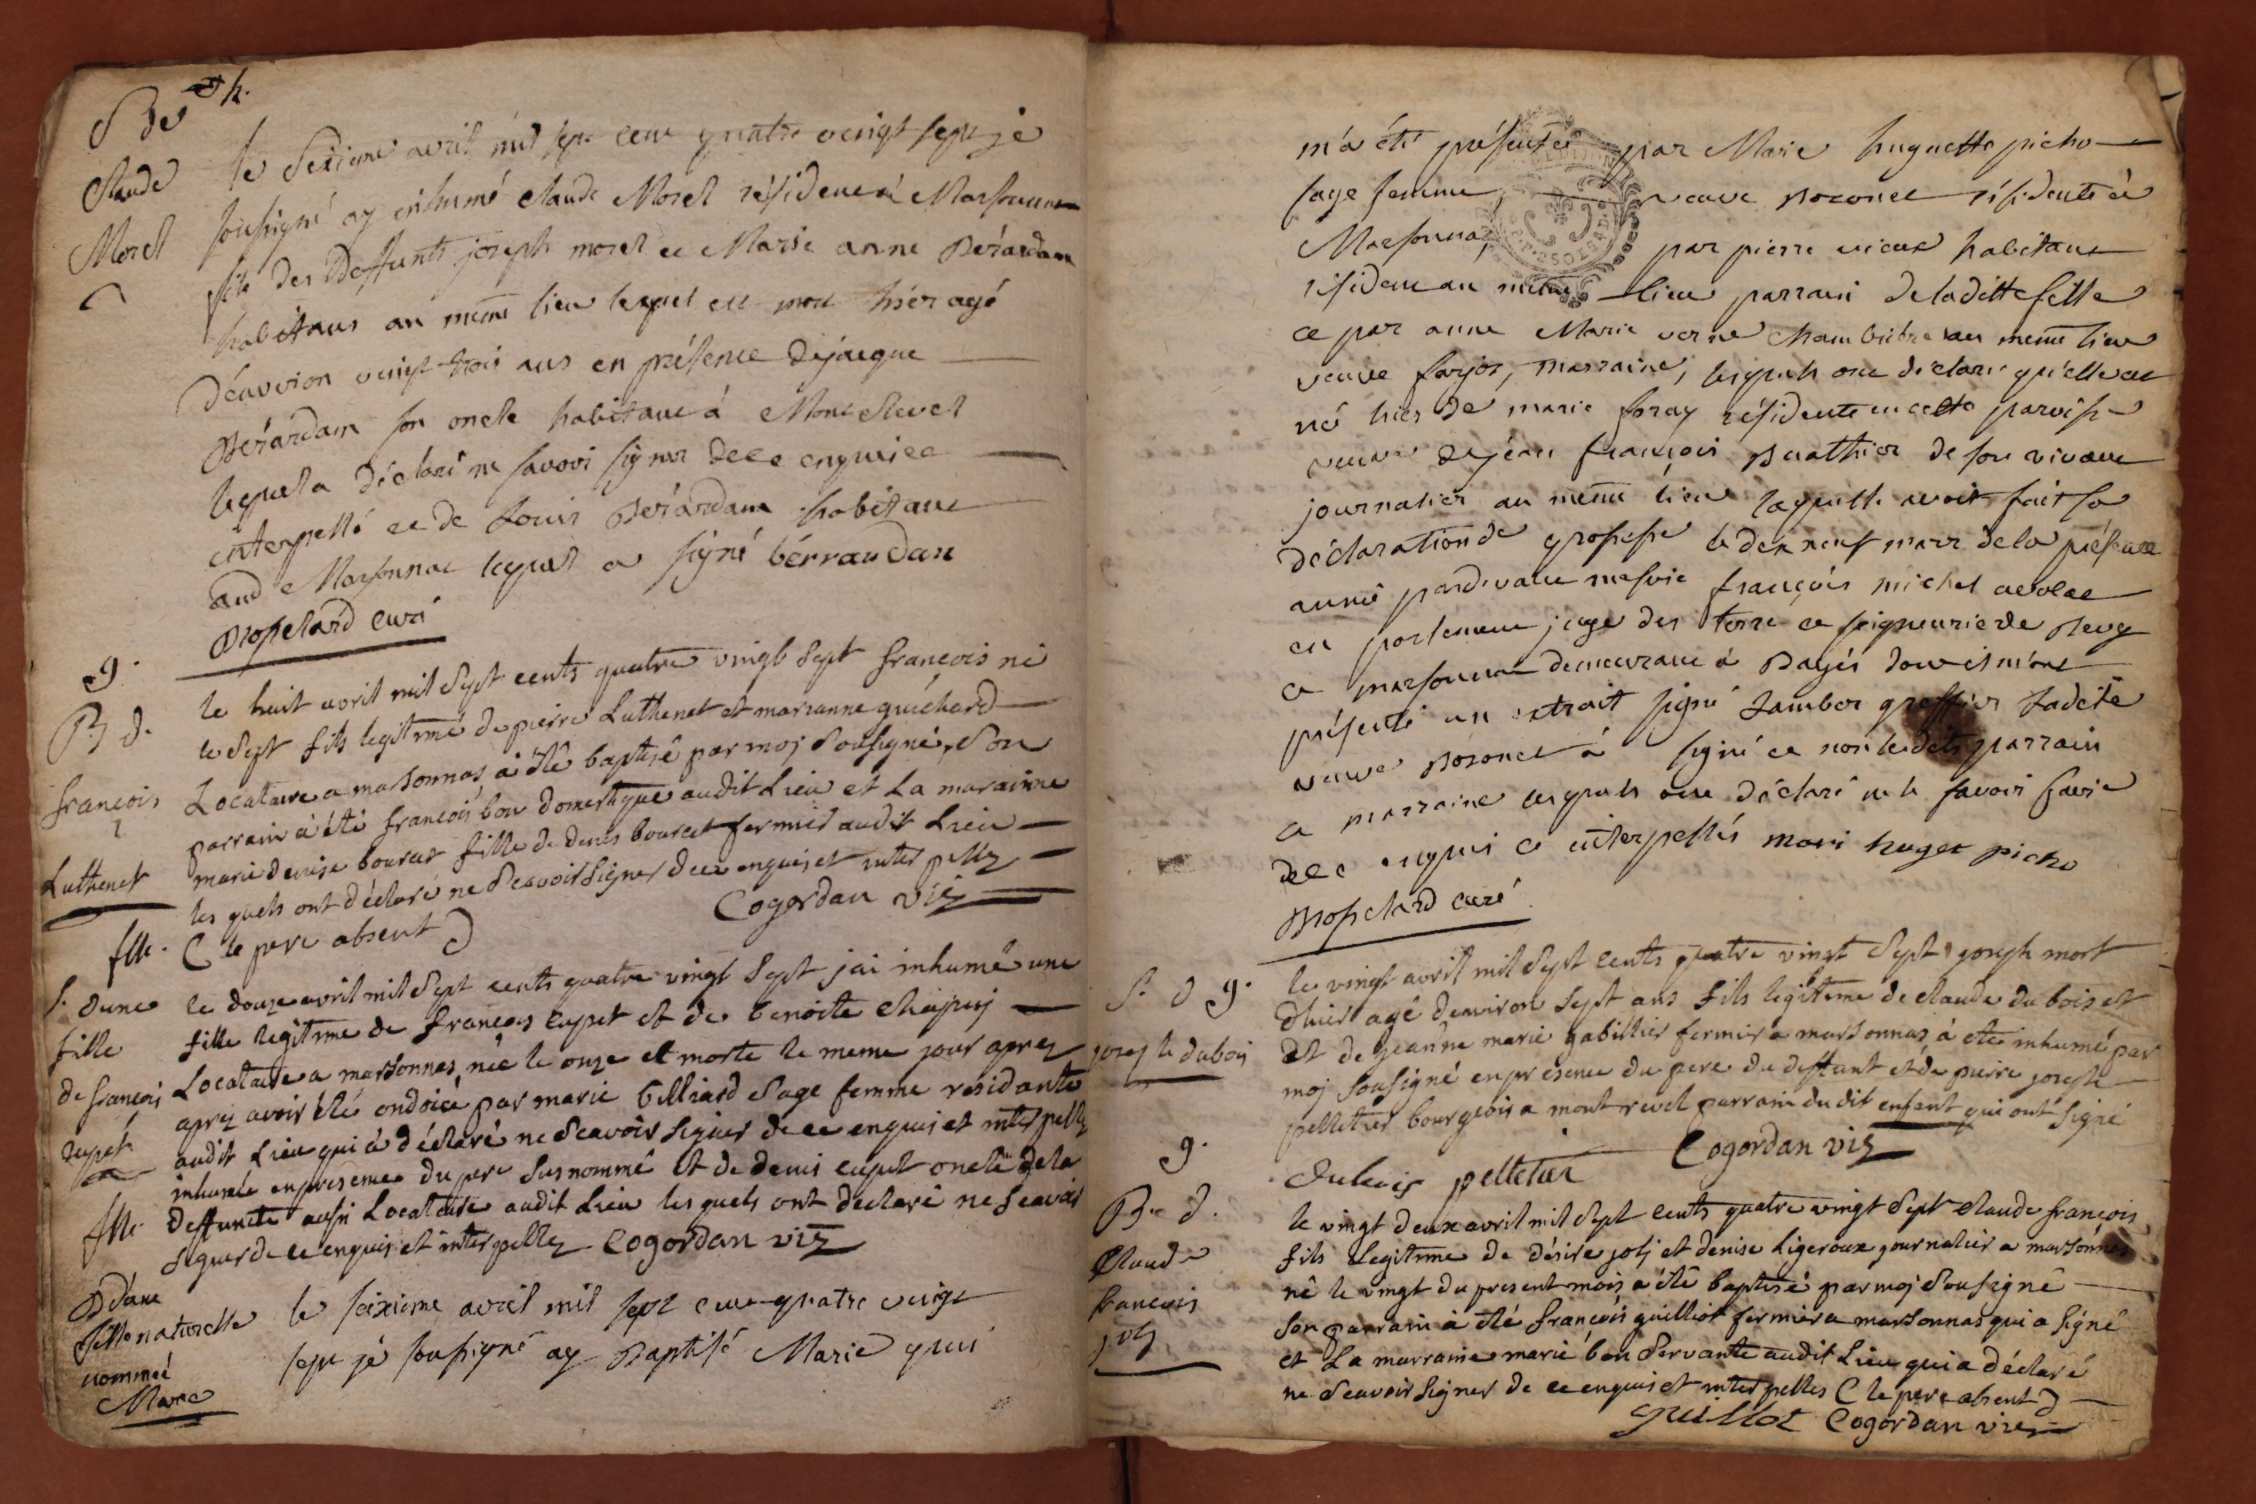 S de
g h.
Claude
Morel
le seixieme avril mil sept cent quatre vingt sept je
soussigné ay inhumé claude Morel résident à Marsonnas
fils des deffunts joseph morel et Marie anne Bérardan
habitans au même lieu lequel est mort hier agé
d'environ vingt trois ans en présence de jacque
Bérardan son oncle habitant à Mont Revel
lequel a déclaré ne savoir signer de ce enquis et
interpellé et de Louis Bérardan habitant
aud Marsonnas lequel a signé bérraudan
Brosselard curé
g.
B d.
françois
Luthenet
le huit avril mil sept cents quatre vingt sept françois né
le sept fils legitime de pierre Luthenet et marianne guichard
Locataire a marsonnas, a été baptisé par moj sousigné, son
parrain à été françois bon domestique audit Lieu et La marainne
marie denise bourcet fille de denis bourcet fermier audit Lieu
les quels ont déclaré ne sçavoir signer de ce enquis et interpellez
( le pere absent ) Cogordan viz
fille.
S. dune
fille
de françois
cupet
fille
le douze avril mil sept cents quatre vingt sept jai inhumé une
fille legitime de françois cupet et de benoite chapuj
Locataire a marsonnas, née le onze et morte le meme jour aprez
aprez avoir été ondoiée par marie billiard sage femme residante
audit Lieu qui à déclaré ne sçavoir signer de ce enquis et interpellez
inhumée en presence du pere susnommé et de denis cupet oncle dela
deffuncte aussi Locataire audit Lieu les quels ont déclaré ne scavoir
signer de ce enquis et interpellez Cogordan viz
B d'une
fille naturelle
nommée
Marie
le seixieme avril mil sept cent quatre vingt
sept je soussigné ay Baptisé Marie qui
m'a été présentée par Marie huguette picho
sage femme, veuve Bozonet résidente à
Marsonnas, par pierre vieux habitant
résident au même lieu parrain de la ditte fille
et par anne Marie verne chambrière au meme lieu
veuve farjos, marraine, lesquels ont déclaré qu'elle est
né hier de marie foray résidente en cette paroisse
veuve de jean françois Buathier de son vivant
journalier au même lieu laquelle avoit fait sa
déclaration de grossesse le dix neuf mars de la présente
année pardevant messire françois michel
en parlement juge des terre et seigneurie de Bevy
et marsonnas demeurant à Bagés dont il m'ont
présenté un extrait signé Jambon greffier Ladite
veuve Bozonet à signé et non lesdits parrain
et marraine lesquels ont déclaré ne le savoir faire
de ce enquis et interpellés mari huget picho
Brosselard curé
S. d g.
joseph dubois
le vingt avril mil sept cents quatre vingt sept joseph mort
d'hier agé denviron sept ans fils legitime de claude du bois et
et de jeanne marie gabillier fermier a marsonnas, à eté inhumé par
moj sousigné en presence du pere du deffunt et de pierre joseph
pelletier bourgeois a mont revel parrain du dit enfant qui ont signé
dubois pelletier Cogordan viz
g.
B. d.
Claude
francois
jolj
le vingt deux avril mil sept cents quatre vingt sept claude françois
fils legitime de désiré jolj et denise Ligeroux journalier a marsonnas
né le vingt du present mois a été baptisé par moj sousigné
son parrain à été françois guilliot fermier a marsonnas qui a signé
et La marraine marie bon servante audit Lieu qui a déclaré
ne sçavoir signer de ce enquis et interpellés ( le pere absent )
guillot Cogordan viz